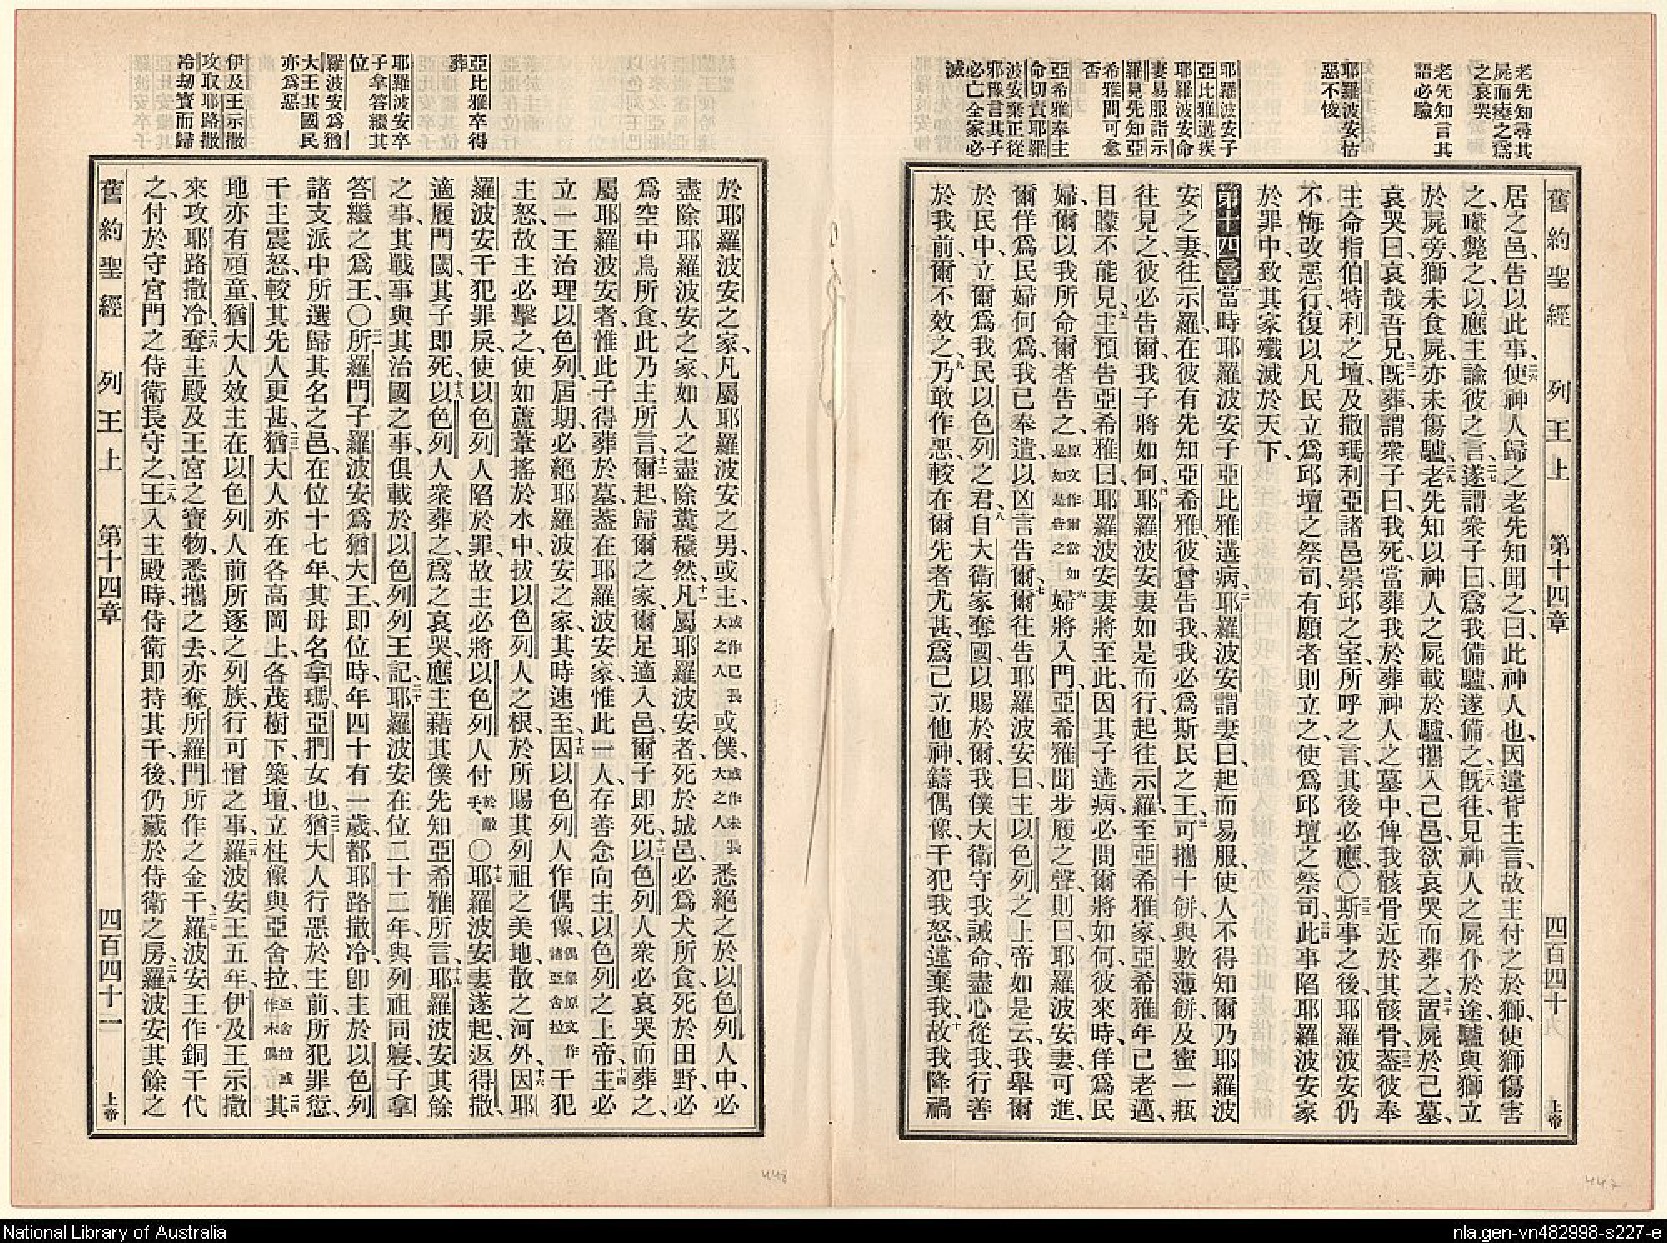 老先知尋其
屍而瘞之爲
之哀哭
老先知言其
語必驗
耶羅波安怙
惡不悛
耶羅波安子
亞比雅遘疾
耶羅波安命
妻易服詣示
羅見先知亞
希雅問可愈
否
亞希雅奉主
命切責耶羅
波安棄正從
邪豫言其子
必亡全家必
滅
舊約聖經 列王上 第十四章 四百四十 上帝
居之邑、告以此事、二六使神人歸之老先知聞之、曰、此神人也、因違背主言、故主付之於獅、使獅傷害
之、嚙斃之、以應主諭彼之言、二七遂謂衆子曰、爲我備驢、遂備之、二八既往、見神人之屍仆於途、驢與獅立
於屍旁、獅未食屍、亦未傷驢、二九老先知以神人之屍載於驢、攜入己邑、欲哀哭而葬之、三十置屍於己墓、
哀哭曰、哀哉吾兄、三一既葬、謂衆子曰、我死、當葬我於葬神人之墓中、俾我骸骨近於其骸骨、三二蓋彼奉
主命、指伯特利之壇、及撒瑪利亞諸邑崇邱之室、所呼之言、其後必應、〇三三斯事之後、耶羅波安仍
不悔改惡行、復以凡民立爲邱壇之祭司、有願者則立之、使爲邱壇之祭司、三四此事陷耶羅波安家
於罪中、致其家殲滅於天下、
第十四章 一當時耶羅波安子亞比雅遘病、二耶羅波安謂妻曰、起而易服、使人不得知爾乃耶羅波
安之妻、往示羅、在彼有先知亞希雅、彼曾告我、我必爲斯民之王、三可攜十餅、與數薄餅、及蜜一瓶、
往見之、彼必告爾、我子將如何、四耶羅波安妻如是而行、起往示羅、至亞希雅家、亞希雅年已老邁、
目矇不能見、五主預告亞希雅曰、耶羅波安妻將至此、因其子遘病、必問爾將如何、彼來時、佯爲民
婦、爾以我所命爾者告之、原文作爾當如是如是告之六婦將入門、亞希雅聞步履之聲、則曰、耶羅波安妻、可進、
爾佯爲民婦何爲、我已奉遣、以凶言告爾、七爾往告耶羅波安曰、主以色列之上帝如是云、我舉爾
於民中、立爾爲我民以色列之君、八自大衛家奪國、以賜於爾、我僕大衛守我誡命、盡心從我、行善
於我前、爾不效之、九乃敢作惡、較在爾先者尤甚、爲己立他神、鑄偶像、干犯我怒、違棄我、十故我降禍
亞比雅卒得
葬
耶羅波安卒
子拿答繼其
位
羅波安爲猶
大王其國民
亦爲惡
伊及王示撒
攻取耶路撒
冷刧寶而歸
於耶羅波安之家、凡屬耶羅波安之男、或主、或作已長大之人或僕、或作未長大之人悉絕之於以色列人中、必
盡除耶羅波安之家、如人之盡除糞穢然、十一凡屬耶羅波安者、死於城邑、必爲犬所食、死於田野、必
爲空中鳥所食、此乃主所言、十二爾起歸爾之家、爾足適入邑、爾子即死、十三以色列人衆必哀哭而葬之、
屬耶羅波安者、惟此子得葬於墓、蓋在耶羅波安家、惟此一人、存善念向主以色列之上帝、十四主必
立一王治理以色列、屆期、必絕耶羅波安之家、其時速至、十五因以色列人作偶像、偶像原文作諸亞舍拉干犯
主怒、故主必擊之、使如蘆葦搖於水中、拔以色列人之根、於所賜其列祖之美地、散之河外、十六因耶
羅波安干犯罪戾、使以色列人陷於罪、故主必將以色列人付於敵手、〇十七耶羅波安妻遂起、返得撒、
適履門閾、其子即死、十八以色列人衆葬之、爲之哀哭、應主藉其僕先知亞希雅所言、十九耶羅波安其餘
之事、其戰事與其治國之事、俱載於以色列列王記、二十耶羅波安在位二十二年、與列祖同寢、子拿
答繼之爲王、〇二一所羅門子羅波安爲猶大王、即位時、年四十有一歲、都耶路撒冷、卽主於以色列
諸支派中、所選歸其名之邑、在位十七年、其母名拿瑪、亞捫女也、二二猶大人行惡於主前、所犯罪愆、
干主震怒、較其先人更甚、二三猶大人亦在各高岡上、各茂樹下、築壇立柱像與亞舍拉、亞舍拉或作木偶二四其
地亦有頑童、猶大人效主在以色列人前所逐之列族、行可憎之事、二五羅波安王五年、伊及王示撒
來攻耶路撒冷、二六奪主殿及王宮之寶物、悉攜之去、亦奪所羅門所作之金干、二七羅波安王作銅干代
之、付於守宮門之侍衛長守之、二八王入主殿時、侍衛即持其干、後仍藏於侍衛之房、二九羅波安其餘之
舊約聖經 列王上 第十四章 四百四十一 上帝
448
447
National Library of Australia
nla.gen-vn482998-s227-e